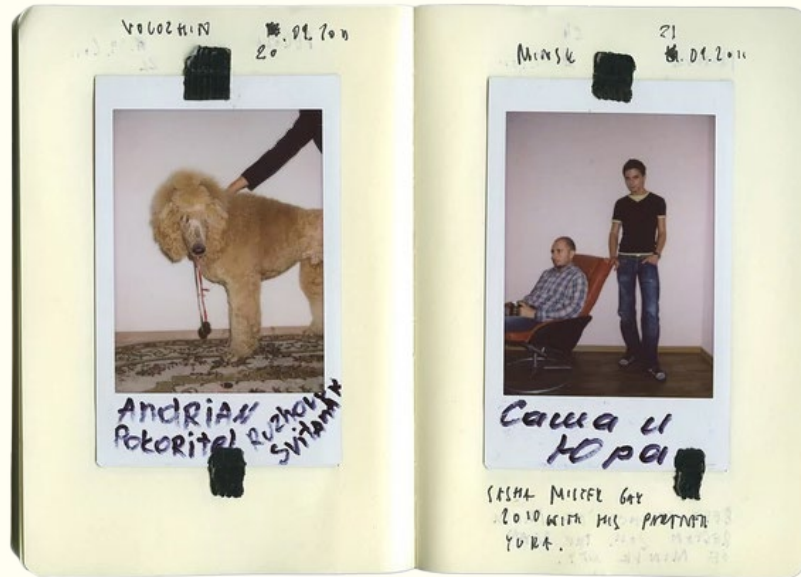 VOLOZHIN
20 .09.2011
ANDRIAN
POKORITEL
RUZHOVY
SVITANAK
MINSK
21 .09.2011
Саша и
Юра
SASHA MISTER GAY
2010 WITH HIS PARTNER
YURA.